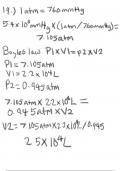 19.) 1 atm = 760 mmHg
5.4 x 10³ mmHg x (1 atm / 760 mmHg) =
7.105 atm
Boyles law P1 x V1 = P2 x V2
P1 = 7.105 atm
V1 = 2.2 x 10⁴ L
P2 = 0.945 atm
7.105 atm x 2.2 x 10⁴ L =
0.945 atm x V2
V2 = 7.105 atm x 2.2 x 10⁴ L / 0.995
2.5 x 10⁴ L